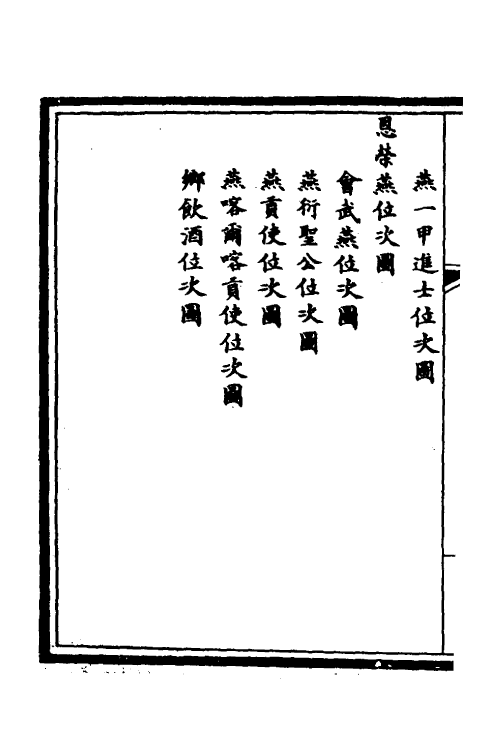 燕一甲進士位次圖
恩榮燕位次圖
會武燕位次圖
燕衍聖公位次圖
燕貢使位次圖
燕喀爾喀貢使位次圖
鄉飲酒位次圖